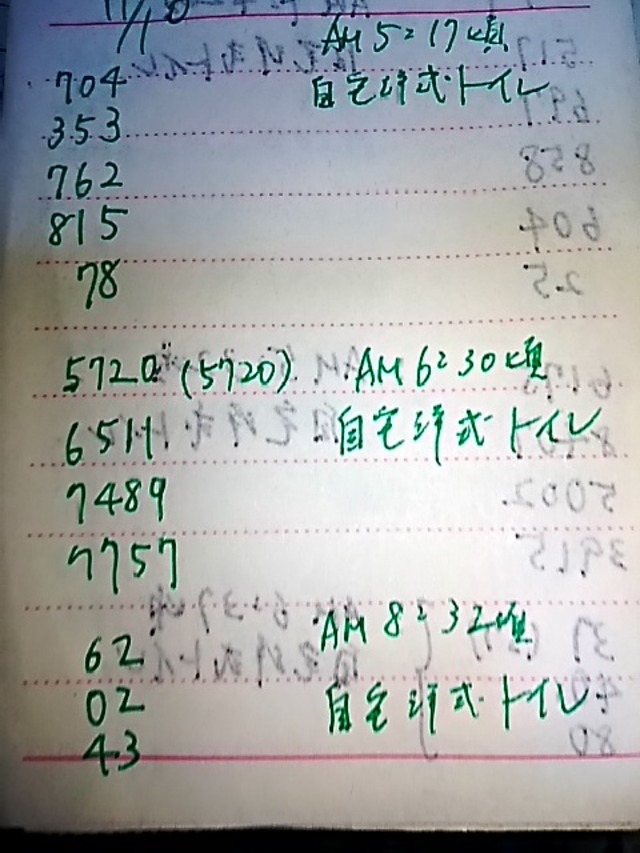 11/10
AM 5:17頃
704 自宅洋式トイレ
353
762
815
78
5720" (5720) AM 6:30頃
6511 自宅洋式トイレ
7489
7757
AM 8:32頃
62
02 自宅洋式トイレ
43